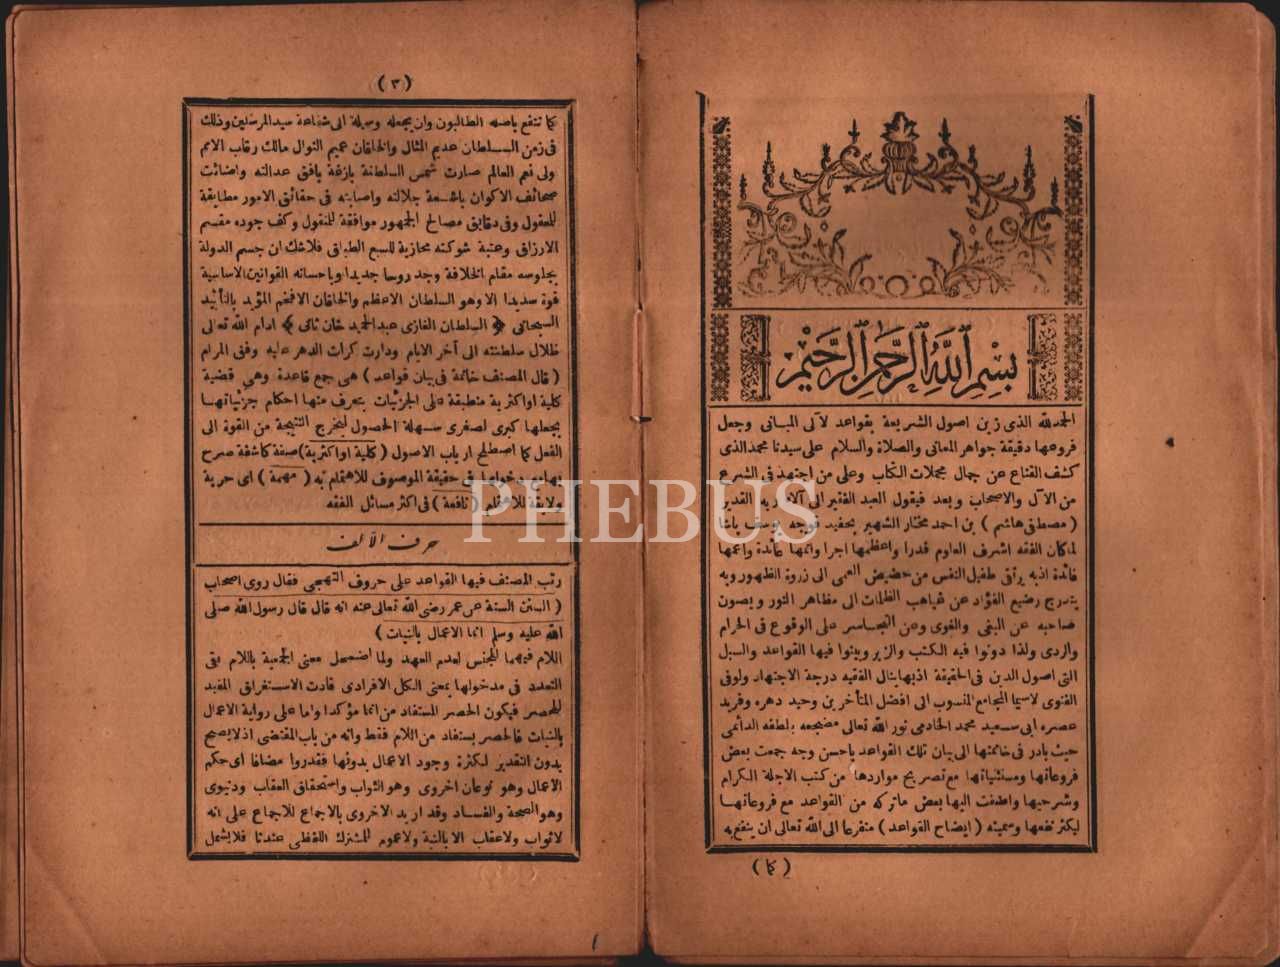 بسم الله الرحمن الرحيم
الحمد لله الذى زين اصول الشريعة بقواعد لآلى المبانى وجعل
فروعها دقيقة جواهر المعانى والصلاة والسلام على سيدنا محمد الذى
كشف القناع عن جمال مجملات الكتاب وعلى من اجتهد فى الشرع
من الآل والاصحاب وبعد فيقول العبد الفقير الى آلاء ربه القدير
(مصطفى هاشم) بن احمد مختار الشهير بحفيد قوجه يوسف پاشا
لما كان الفقه اشرف العلوم قدرا واعظمها اجرا واتمها عائدة واعمها
فائدة اذبه يرتقى طفيل النفس من حضيض العمى الى زروة الظهور وبه
يتدرج رضيع الفؤاد عن غياهب الظلمات الى مظاهر النور ويصون
صاحبه عن البغى والغوى وعن التجاسر على الوقوع فى الحرام
والردى ولذا دونوا فيه الكتب والزبر وبينوا فيها القواعد والسبل
التى اصول الدين فى الحقيقة اذبها ينال الفقيه درجة الاجتهاد ولو فى
الفتوى لاسيما المجامع المنسوب الى افضل المتأخرين وحيد دهره وفريد
عصره ابى سعيد محمد الخادمى نور الله تعالى مضجعه بلطفه الدائمى
حيث بادر فى خاتمتها الى بيان تلك القواعد باحسن وجه جمعت بعض
فروعاتها ومستثنياتها مع تصريح مواردها من كتب الاجلة الكرام
وشرحيها واضفت اليها بعض ماتركه من القواعد مع فروعاتها
ليكثر نفعها وسميته (ايضاح القواعد) متضرعا الى الله تعالى ان ينتفع به
(كما)
(٣)
كما تنتفع باصله الطالبون وان يجعله وسيلة الى شفاعة سيد المرسلين وذلك
فى زمن السلطان عديم المثال والخاقان عميم النوال مالك رقاب الامم
ولى نعم العالم صارت شمس السلطنة بازغة بافق عدالته واضائت
صحائف الاكوان باشعة جلالته واصابته فى حقائق الامور مطابقة
للمعقول وفى دقايق مصالح الجمهور موافقة للمنقول وكف جوده مقسم
الارزاق وعتبة شوكته محازية للسبع الطباق فلاشك ان جسم الدولة
بجلوسه مقام الخلافة وجد روحا جديدا وباحسانه القوانين الاساسية
قوة سديدا الا وهو السلطان الاعظم والخاقان الافخم المؤيد بالتأييد
السبحانى ﴿ السلطان الغازى عبد الحميد خان ثانى ﴾ ادام الله تعالى
ظلال سلطنته الى آخر الايام ودارت كرات الدهر عليه وفق المرام
(قال المصنف خاتمة فى بيان قواعد) هى جمع قاعدة وهى قضية
كلية او اكثرية منطبقة على الجزئيات يتعرف منها احكام جزئياتها
بجعلها كبرى لصغرى سهلة الحصول ليخرج النتيجة من القوة الى
الفعل كما اصطلح ارباب الاصول (كلية او اكثرية) صفة كاشفة صرح
بها مع دخولها فى حقيقة الموصوف للاهتمام به (مهمة) اى حرية
ولايقة للاهتمام (نافعة) فى اكثر مسائل الفقه
حرف الالف
رتب المصنف فيها القواعد على حروف التهجى فقال روى اصحاب
(السنن الستة عن عمر رضى الله تعالى عنه انه قال قال رسول الله صلى
الله عليه وسلم انما الاعمال بالنيات)
اللام فيهما للجنس لعدم العهد ولما اضمحل معنى الجمعية باللام بقى
التعدد فى مدخولها بمعنى الكل الافرادى فادت الاستغراق المفيد
للحصر فيكون الحصر المستفاد من انما مؤكدا واما على رواية الاعمال
بالنيات فالحصر يستفاد من اللام فقط وانه من باب المقتضى اذ لايصح
بدون التقدير لكثرة وجود الاعمال بدونها فقدروا مضافا اى حكم
الاعمال وهو نوعان اخروى وهو الثواب واستحقاق العقاب ودنيوى
وهو الصحة والفساد وقد اريد الاخروى بالاجماع للاجماع على انه
لاثواب ولاعقاب الا بالنية ولاعموم للمشترك اللفظى عندنا فلايشمل
PHEBUS